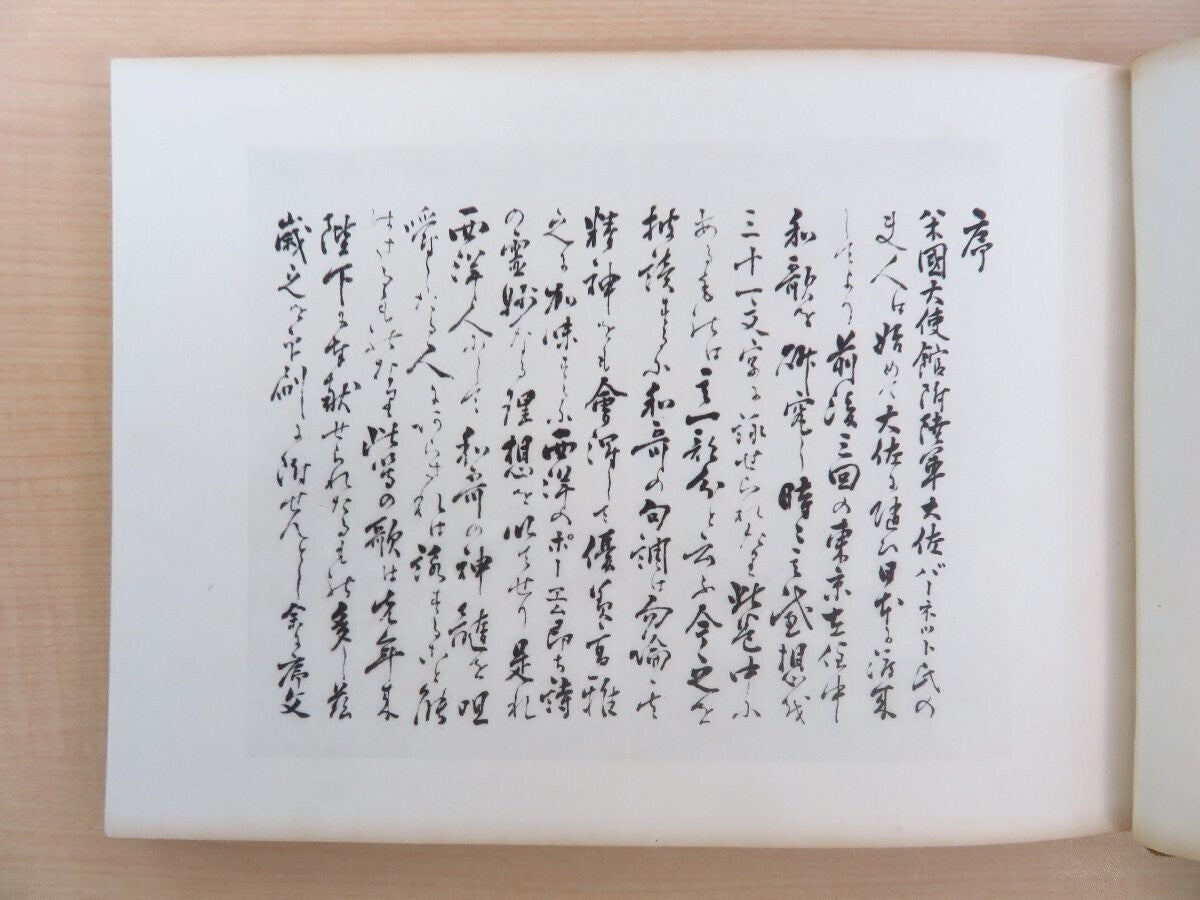 序
米國大使館附陸軍大佐バーネット氏の
夫人は始めて大佐に随ひ日本に渡来
してより前後三回の東京在住中
和歌を研究し時々其感想を
三十一文字に詠せられたり此巻中に
あるものは其一部分と云ふ今之を
拝読するに和哥の句調は勿論其
精神をも會得して優美高雅
之に加味するに西洋のポーエム即ち詩
の霊妙なる理想を以てせり是れ
西洋人にして和哥の神髄を咀
嚼したる人にあらされは該すること能
はさるものなり此等の歌は先年来
陛下に奉献せられたるもの多し茲
歳之を印刷に附せんとし余に序文